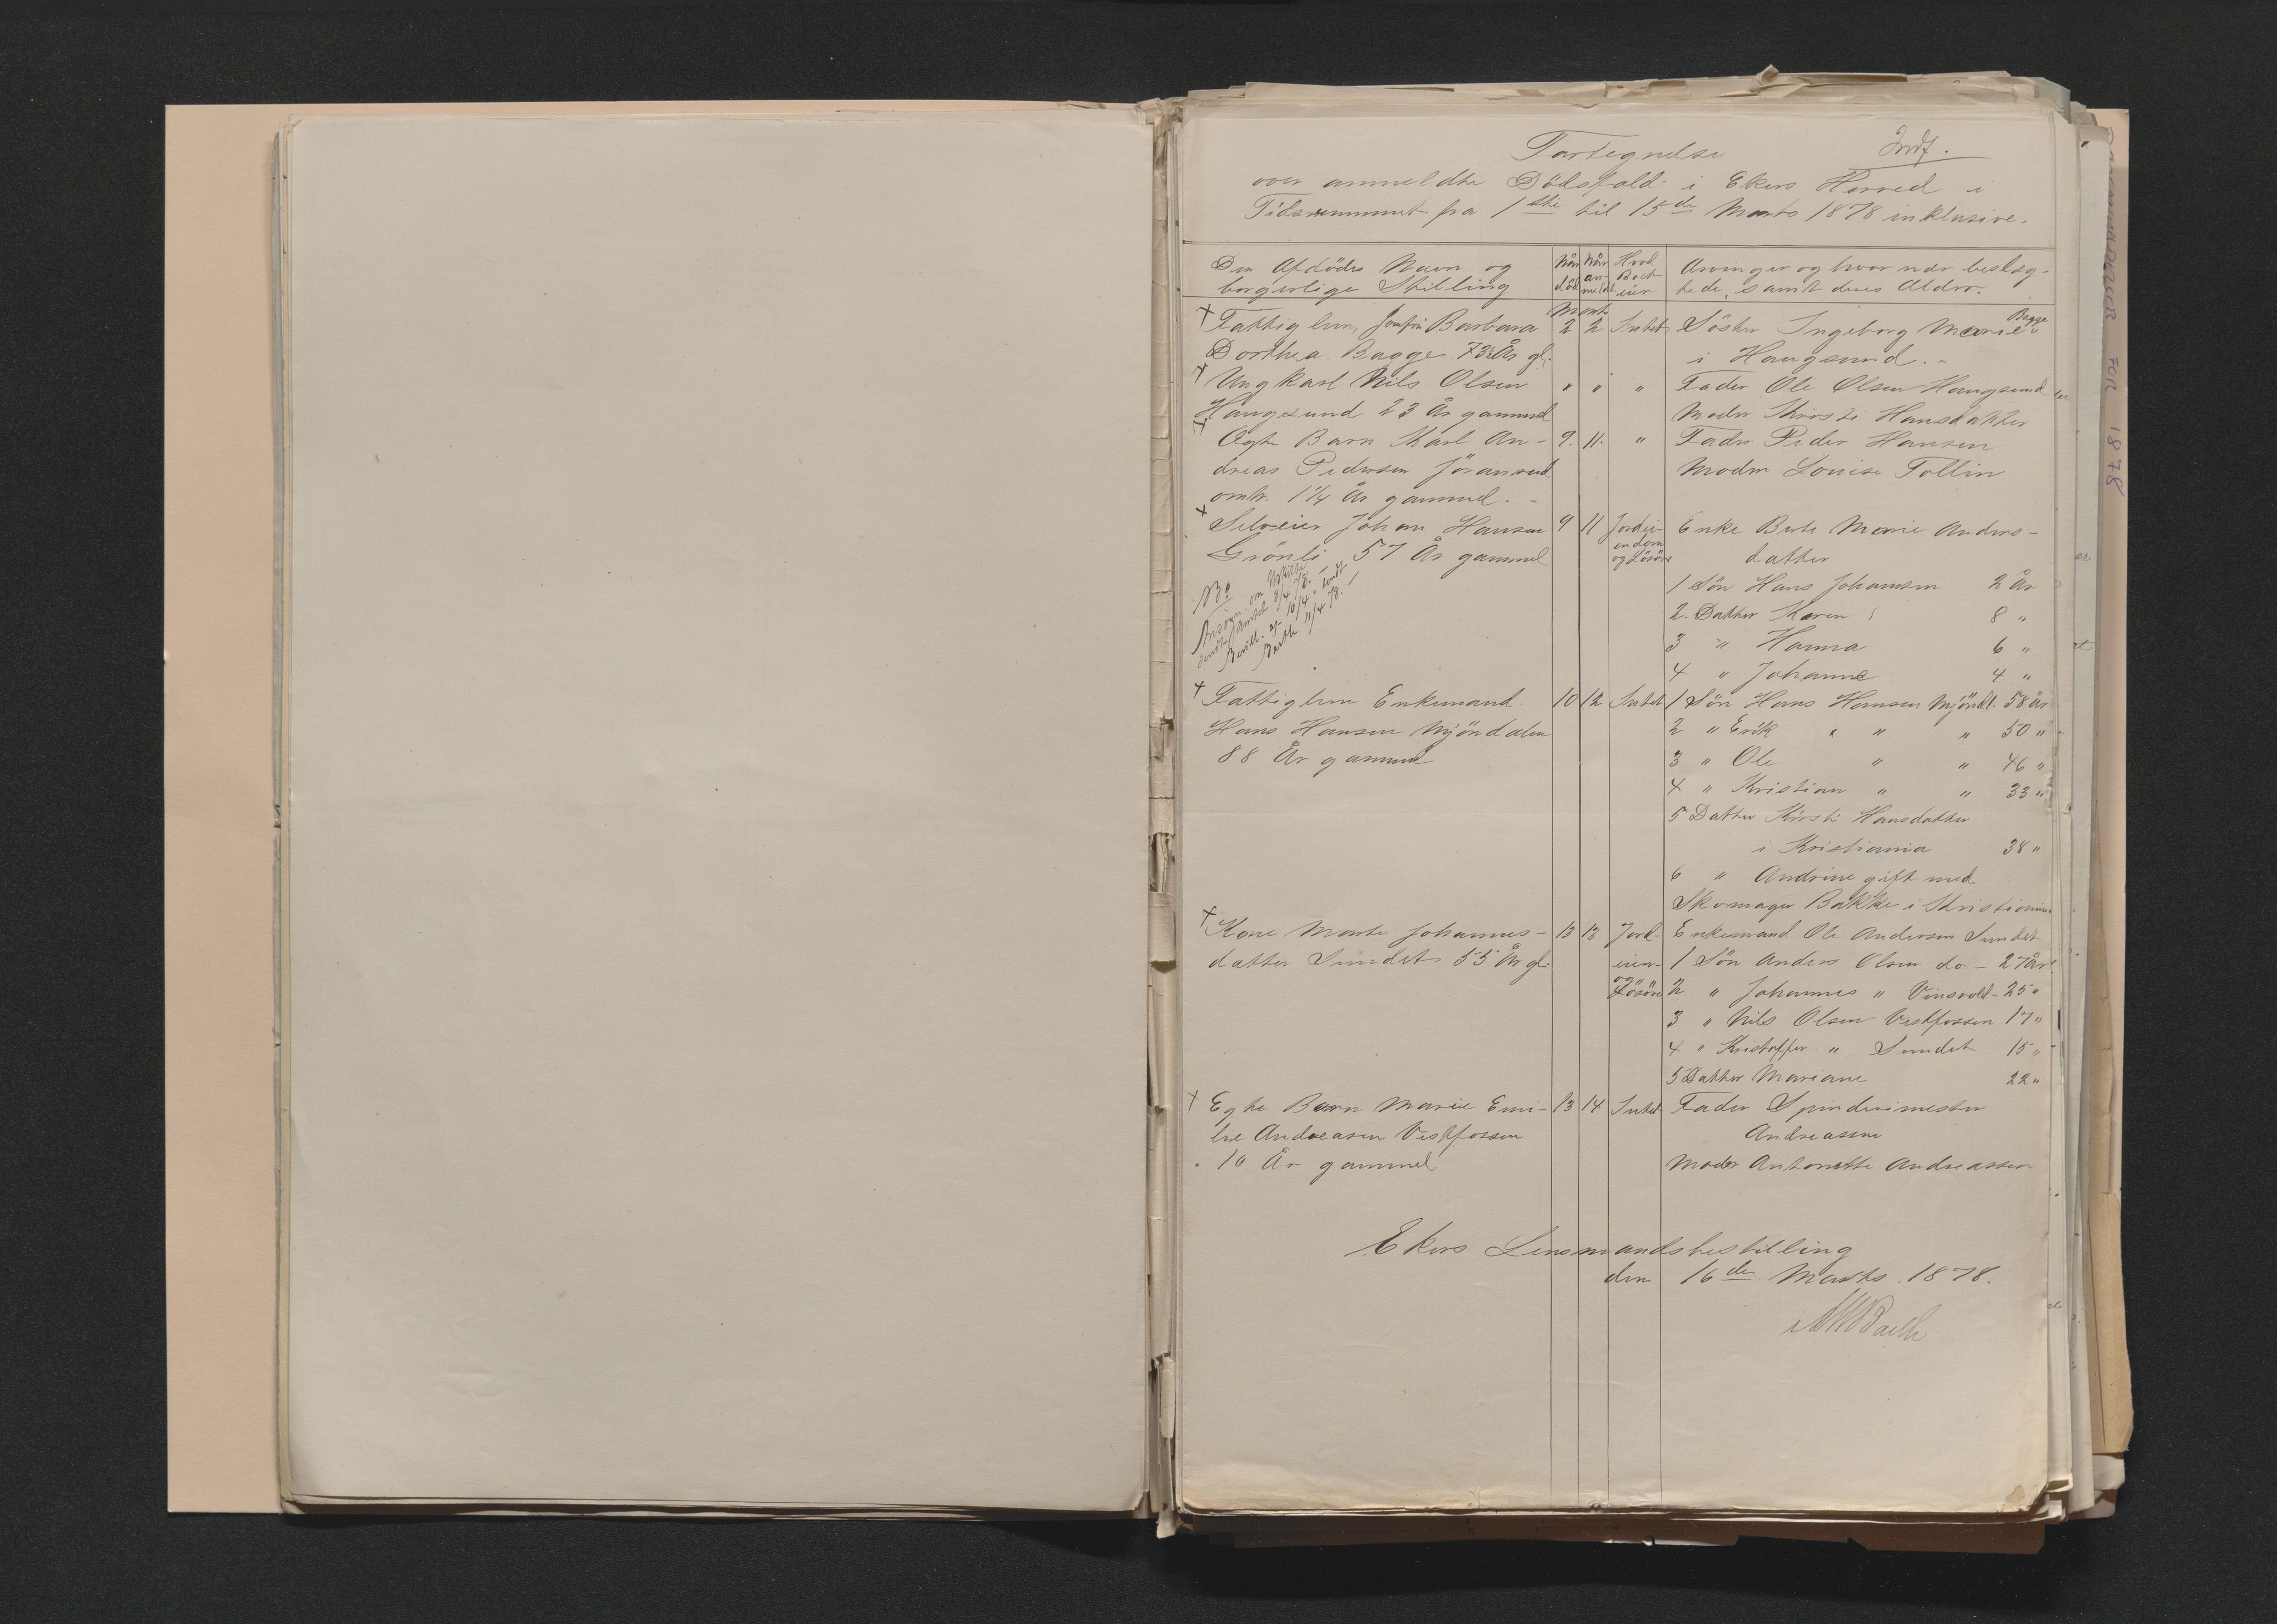 Fortegnelse Indf.
over anmeldte Dödsfald i Ekers Herred i
Tidsrummet fra 1ste til 15de Marts 1878 inklusive.
Den Afdödes Navn og borgerlige Stilling
Når död
Når anmeldt
Hvad Boet eier
Arvinger og hvor nær beslægtede, samt deres Alder.
Marts
+ Fattiglem, Jomfru Barbara 2 2 Intet Söster Ingeborg Marie Bagge
Dorthea Bagge 73 År gl. i Haugsund.
+ Ungkarl Nils Olsen " " " Fader Ole Olsen Haugsund
Haugsund 23 År gammel Moder Kirsti Hansdatter
+ Ægte Barn Karl An- 9. 11. " Fader Peder Hansen
dreas Pedersen Jöransrud Moder Louise Tollin
omtr. 1 1/4 År gammel.
+ Selveier Johan Hansen 9 11 Jordei- Enke Berte Marie Anders-
Grönli 57 År gammel endom og Lösöre datter
1 Sön Hans Johansen 2 År
No
Ansögn. om Uskifte
sendt Amtet 8/4 78.
Bevill. af 10/4 sendt
Baklke 11/4 78.
2. Datter Karen 8 "
3 " Hanna 6 "
4 " Johanne 4 "
+ Fattiglem Enkemand 10 12 Intet 1 Sön Hans Hansen Mjöndl. 58 år
Hans Hansen Mjöndalen 2 " Erik " " " 50 "
88 År gammel 3 " Ole " " 46 "
4 " Kristian " " 33 "
5 Datter Kirsti Hansdatter
i Kristiania 38 "
6 " Andrine gift med
Skomager Bakke i Kristiania
+ Kone Marte Johannes- 13 13 Jord- Enkemand Ole Andersen Sundet
datter Sundet 55 År gl. eien- 1 Sön Anders Olsen do - 27 År
og Lösöre 2 " Johannes " Vinsvold - 25 "
3 " Nils Olsen Vestfossen 17 "
4 " Kristoffer " Sundet 15 "
5 Datter Mariane 22 "
+ Egte Barn Marie Emi- 13 14 Intet Fader Spinderimester
lie Andreasen Vestfossen Andreassen
10 År gammel Moder Antonette Andreassen
Ekers Lensmandsbestilling
den 16de Marts 1878.
FOR 1878